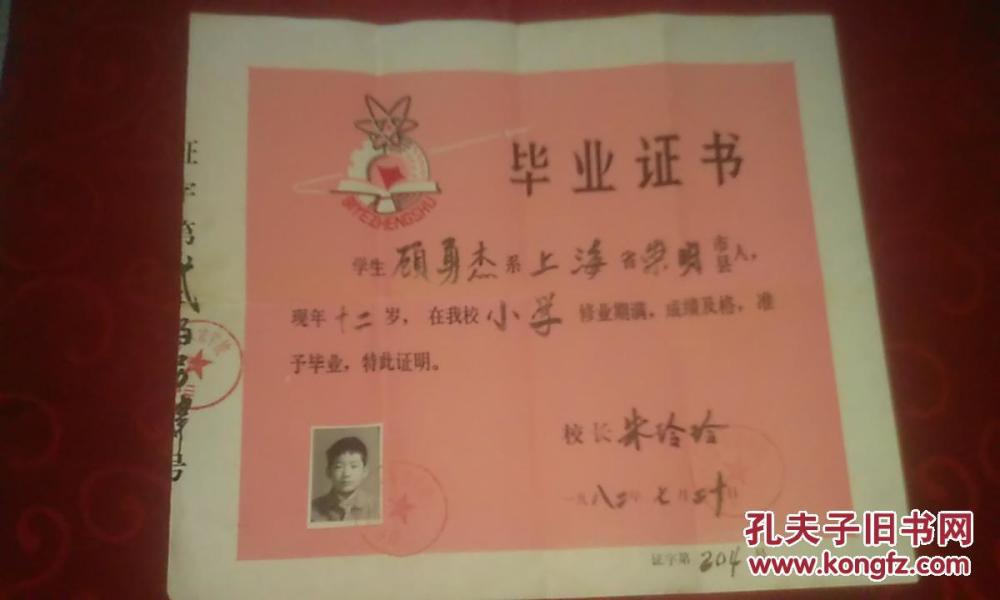 毕业证书
BIYEZHENGSHU
学生顾勇杰系上海省崇明市县人，
现年十二岁，在我校小学修业期满，成绩及格，准
予毕业，特此证明。
校长朱玲玲
一九八二年七月二十日
证字第204号
证字第贰
号
孔夫子旧书网
www.kongfz.com